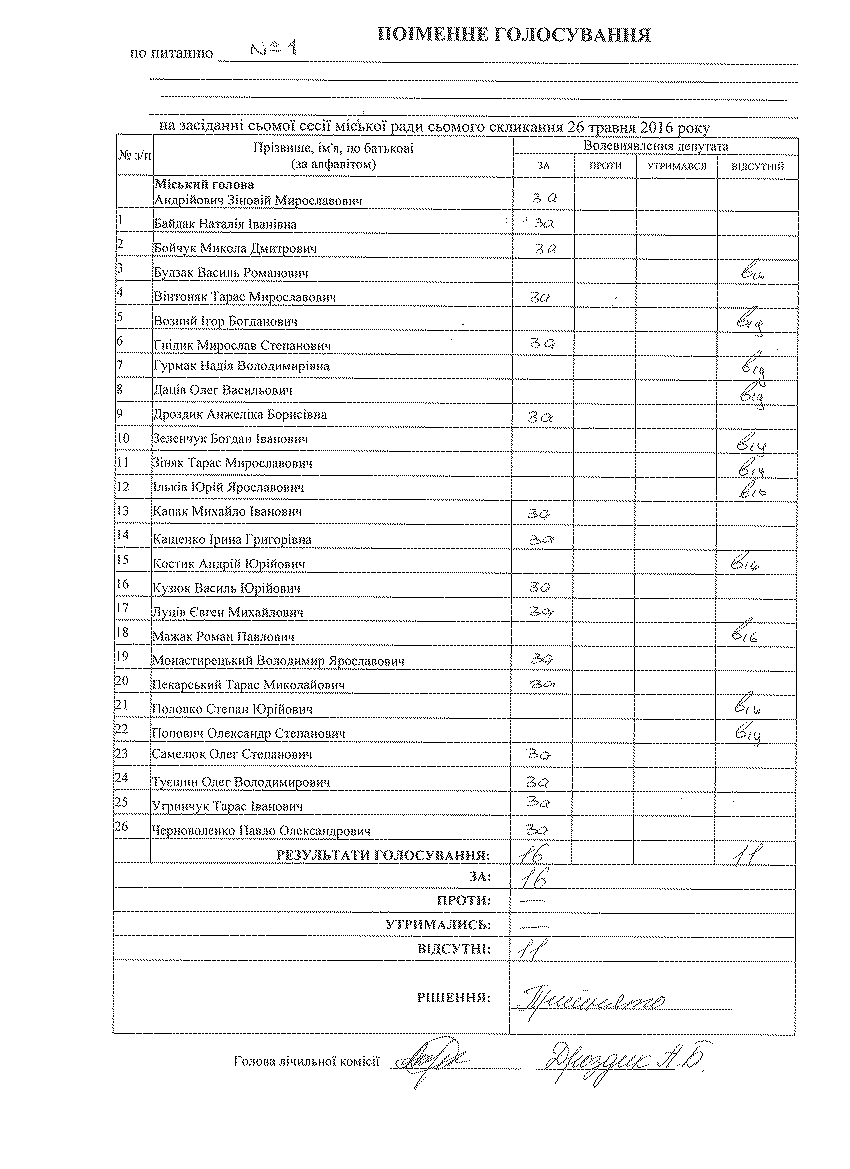 ПОІМЕННЕ ГОЛОСУВАННЯ
по питанню № 1
на засіданні сьомої сесії міської ради сьомого скликання 26 травня 2016 року
№ з/п Прізвище, ім'я, по батькові (за алфавітом) Волевиявлення депутата
ЗА ПРОТИ УТРИМАВСЯ ВІДСУТНІЙ
Міський голова
Андрійович Зіновій Мирославович за
1 Байдак Наталія Іванівна за
2 Бойчук Микола Дмитрович за
3 Будзак Василь Романович від
4 Вінтоняк Тарас Мирославович за
5 Возний Ігор Богданович від
6 Гнідик Мирослав Степанович за
7 Гурмак Надія Володимирівна від
8 Даців Олег Васильович від
9 Дроздик Анжеліка Борисівна за
10 Зеленчук Богдан Іванович від
11 Зіняк Тарас Мирославович від
12 Ільків Юрій Ярославович від
13 Капак Михайло Іванович за
14 Кащенко Ірина Григорівна за
15 Костик Андрій Юрійович від
16 Кузюк Василь Юрійович за
17 Луців Євген Михайлович за
18 Мажак Роман Павлович від
19 Монастирецький Володимир Ярославович за
20 Пекарський Тарас Миколайович за
21 Половко Степан Юрійович від
22 Попович Олександр Степанович від
23 Самелюк Олег Степанович за
24 Туєшин Олег Володимирович за
25 Угринчук Тарас Іванович за
26 Черноволенко Павло Олександрович за
РЕЗУЛЬТАТИ ГОЛОСУВАННЯ: 16 11
ЗА: 16
ПРОТИ: —
УТРИМАЛИСЬ: —
ВІДСУТНІ: 11
РІШЕННЯ: Прийнято
Голова лічильної комісії Дроздик А.Б.